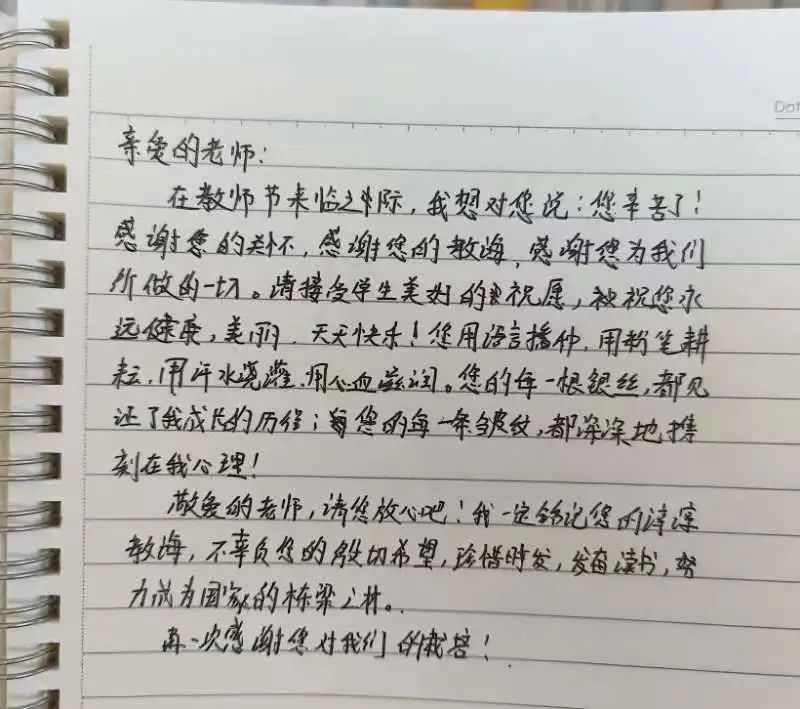 Dot
亲爱的老师：
在教师节来临之际，我想对您说：您辛苦了！
感谢您的关怀，感谢您的教诲，感谢您为我们
所做的一切。请接受学生美好的祝愿，祝您永
远健康，美丽．天天快乐！您用语言播种．用粉笔耕
耘．用汗水浇灌．用心血滋润。您的每一根银丝，都见
证了我成长的历程；您的每一条皱纹，都深深地
刻在我心理！
敬爱的老师，请您放心吧！我一定铭记您的谆谆
教诲，不辜负您的殷切希望，珍惜时，发奋读书，努
力成为国家的栋梁之材。
再一次感谢您对我们的栽培！